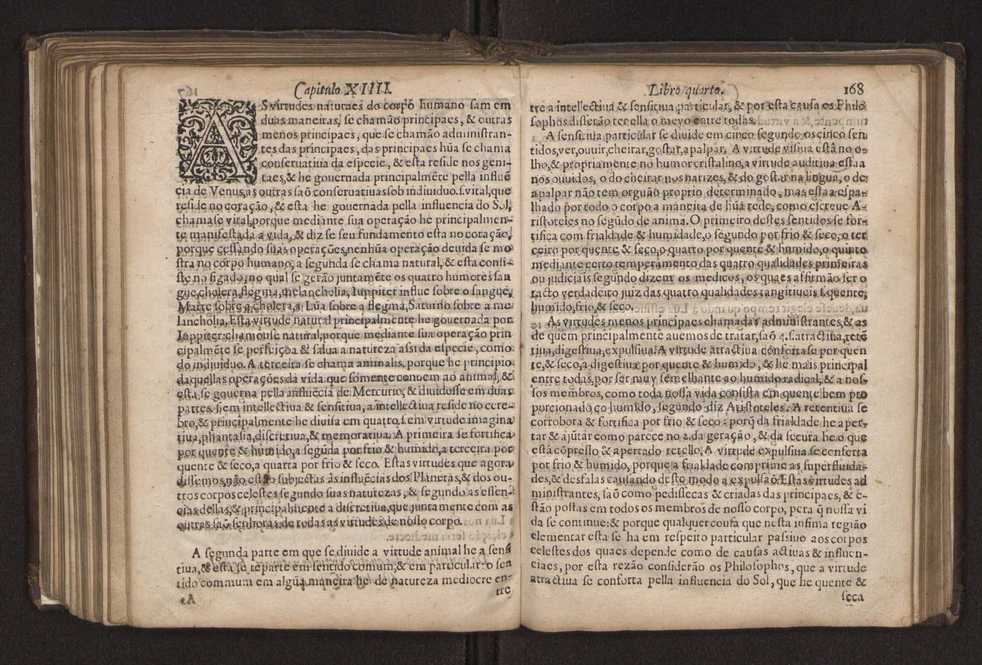 167
Capitulo XIIII.
AS virtudes naturaes do corpo humano sam em
duas maneiras, se chamão principaes, & outras
menos principaes, que se chamão administran-
tes das principaes, das principaes hũa se chama
conseruatiua da especie, & esta reside nos geni-
taes, & he gouernada principalmẽte pella influẽ
cia de Venus, as outras saõ conseruatiuas sob indiuiduo. s. vital, que
reside no coração, & esta he gouernada pella influencia do Sol,
chamase vital, porque mediante sua operação he principalmen-
te manifestada a vida, & diz se seu fundamento esta no coração,
porque cessando suas operações, nenhũa operação deuida se mo
stra no corpo humano, a segunda se chama natural, & esta consi-
ste no figado, no qual se gerão juntamẽte os quatro humores san
gue, cholera, flegma, melancholia, Iuppiter influe sobre o sangue,
Marte sobre a cholera, a Lũa sobre a flegma, Saturno sobre a me
lancholia. Esta virtude natural principalmente he gouernada por
Iuppiter, chamouse natural, porque mediante sua operação prin
cipalmẽte se perfeiçoa & salua a natureza assi da especie, como
do indiuiduo. A terceira se chama animalis, porque he principio
daquellas operações da vida que sómente conuem ao animal, &
esta se gouerna pella influẽcia de Mercurio, & diuidosse em duas
partes. s. em intellectiua & sensitiua, a intellectiua reside no cere-
bro, & principalmente he diuisa em quatro. s. em virtude imagina
tiua, phantasia, discretiua, & memoratiua. A primeira se fortifica
por quente & humido, a segũda por frio & humido, a terceira por
quente & seco, a quarta por frio & seco. Estas virtudes que agora
dissemos, não estão subjectas às influẽcias dos Planetas, & dos ou-
tros corpos celestes segundo suas naturezas, & segundo as essen-
cias dellas, & principalmente a discretiua, que juntamente com as
outras saõ senhoras de todas as virtudes de nosso corpo.
A segunda parte em que se diuide a virtude animal he a sensi
tiua, & esta se reparte em sentido comum, & em particular: o sen
tido commum em algũa maneira he de natureza mediocre en-
tre
Libro quarto. 168
tre a intellectiua & sensitiua particular, & por esta causa os Philo
sophos disserão ter ella o meyo entre todas.
A sensitiua particular se diuide em cinco segundo os cinco sen
tidos, ver, ouuir, cheirar, gostar, apalpar. A virtude visiua està no o-
lho, & propriamente no humor cristalino, a virtude auditiua esta a
nos ouuidos, o do cheirar nos narizes, & do gostar na lingua, o de
apalpar não tem orguão proprio determinado, mas esta a espa-
lhado por todo o corpo a maneira de hũa rede, como escreue A-
ristoteles no segũdo de anima. O primeiro destes sentidos se for-
tifica com frialdade & humidade, o segundo por frio & seco, o ter
ceiro por quente & seco, o quarto por quente & humido, o quinto
mediante certo temperamento das quatro qualidades primeiras
ou judiciais segundo dizem os medicos, os quaes affirmão ser o
tacto verdadeiro juiz das quatro qualidades tangitiuas. s. quente,
humido, frio, & seco.
As virtudes menos principaes chamadas administrantes, & as
de quem principalmente auemos de tratar, saõ 4. s. atractiua, retẽ
tiua, digestiua, expulsiua. A virtude atractiua conforta se por quen
te, & seco, a digestiua por quente & humido, & he mais principal
entre todas, por ser muy semelhante ao humido radical, & a nos-
sos membros, como toda nossa vida consista em quente bem pro
porcionado co humido, segundo diz Aristoteles. A retentiua se
corrobora & fortifica por frio & seco: porq̃ da frialdade he aper-
tar & ajũtar como parece no 2. da geração, & da secura he o que
està cõpresso & apertado retello. A virtude expulsiua se conforta
por frio & humido, porque a frialdade comprime as superfluida-
des, & desfalas causando deste modo a expulsaõ. Estas virtudes ad
ministrantes, saõ como pedissecas & criadas das principaes, & e-
stão postas em todos os membros de nosso corpo, pera q̃ nossa vi
da se continue: & porque qualquer cousa que nesta infima região
elementar esta se ha em respeito particular passiuo aos corpos
celestes dos quaes depende como de causas actiuas & influen-
ciaes, por esta rezão considerão os Philosophos, que a virtude
atractiua se conforta pella influencia do Sol, que he quente &
seca